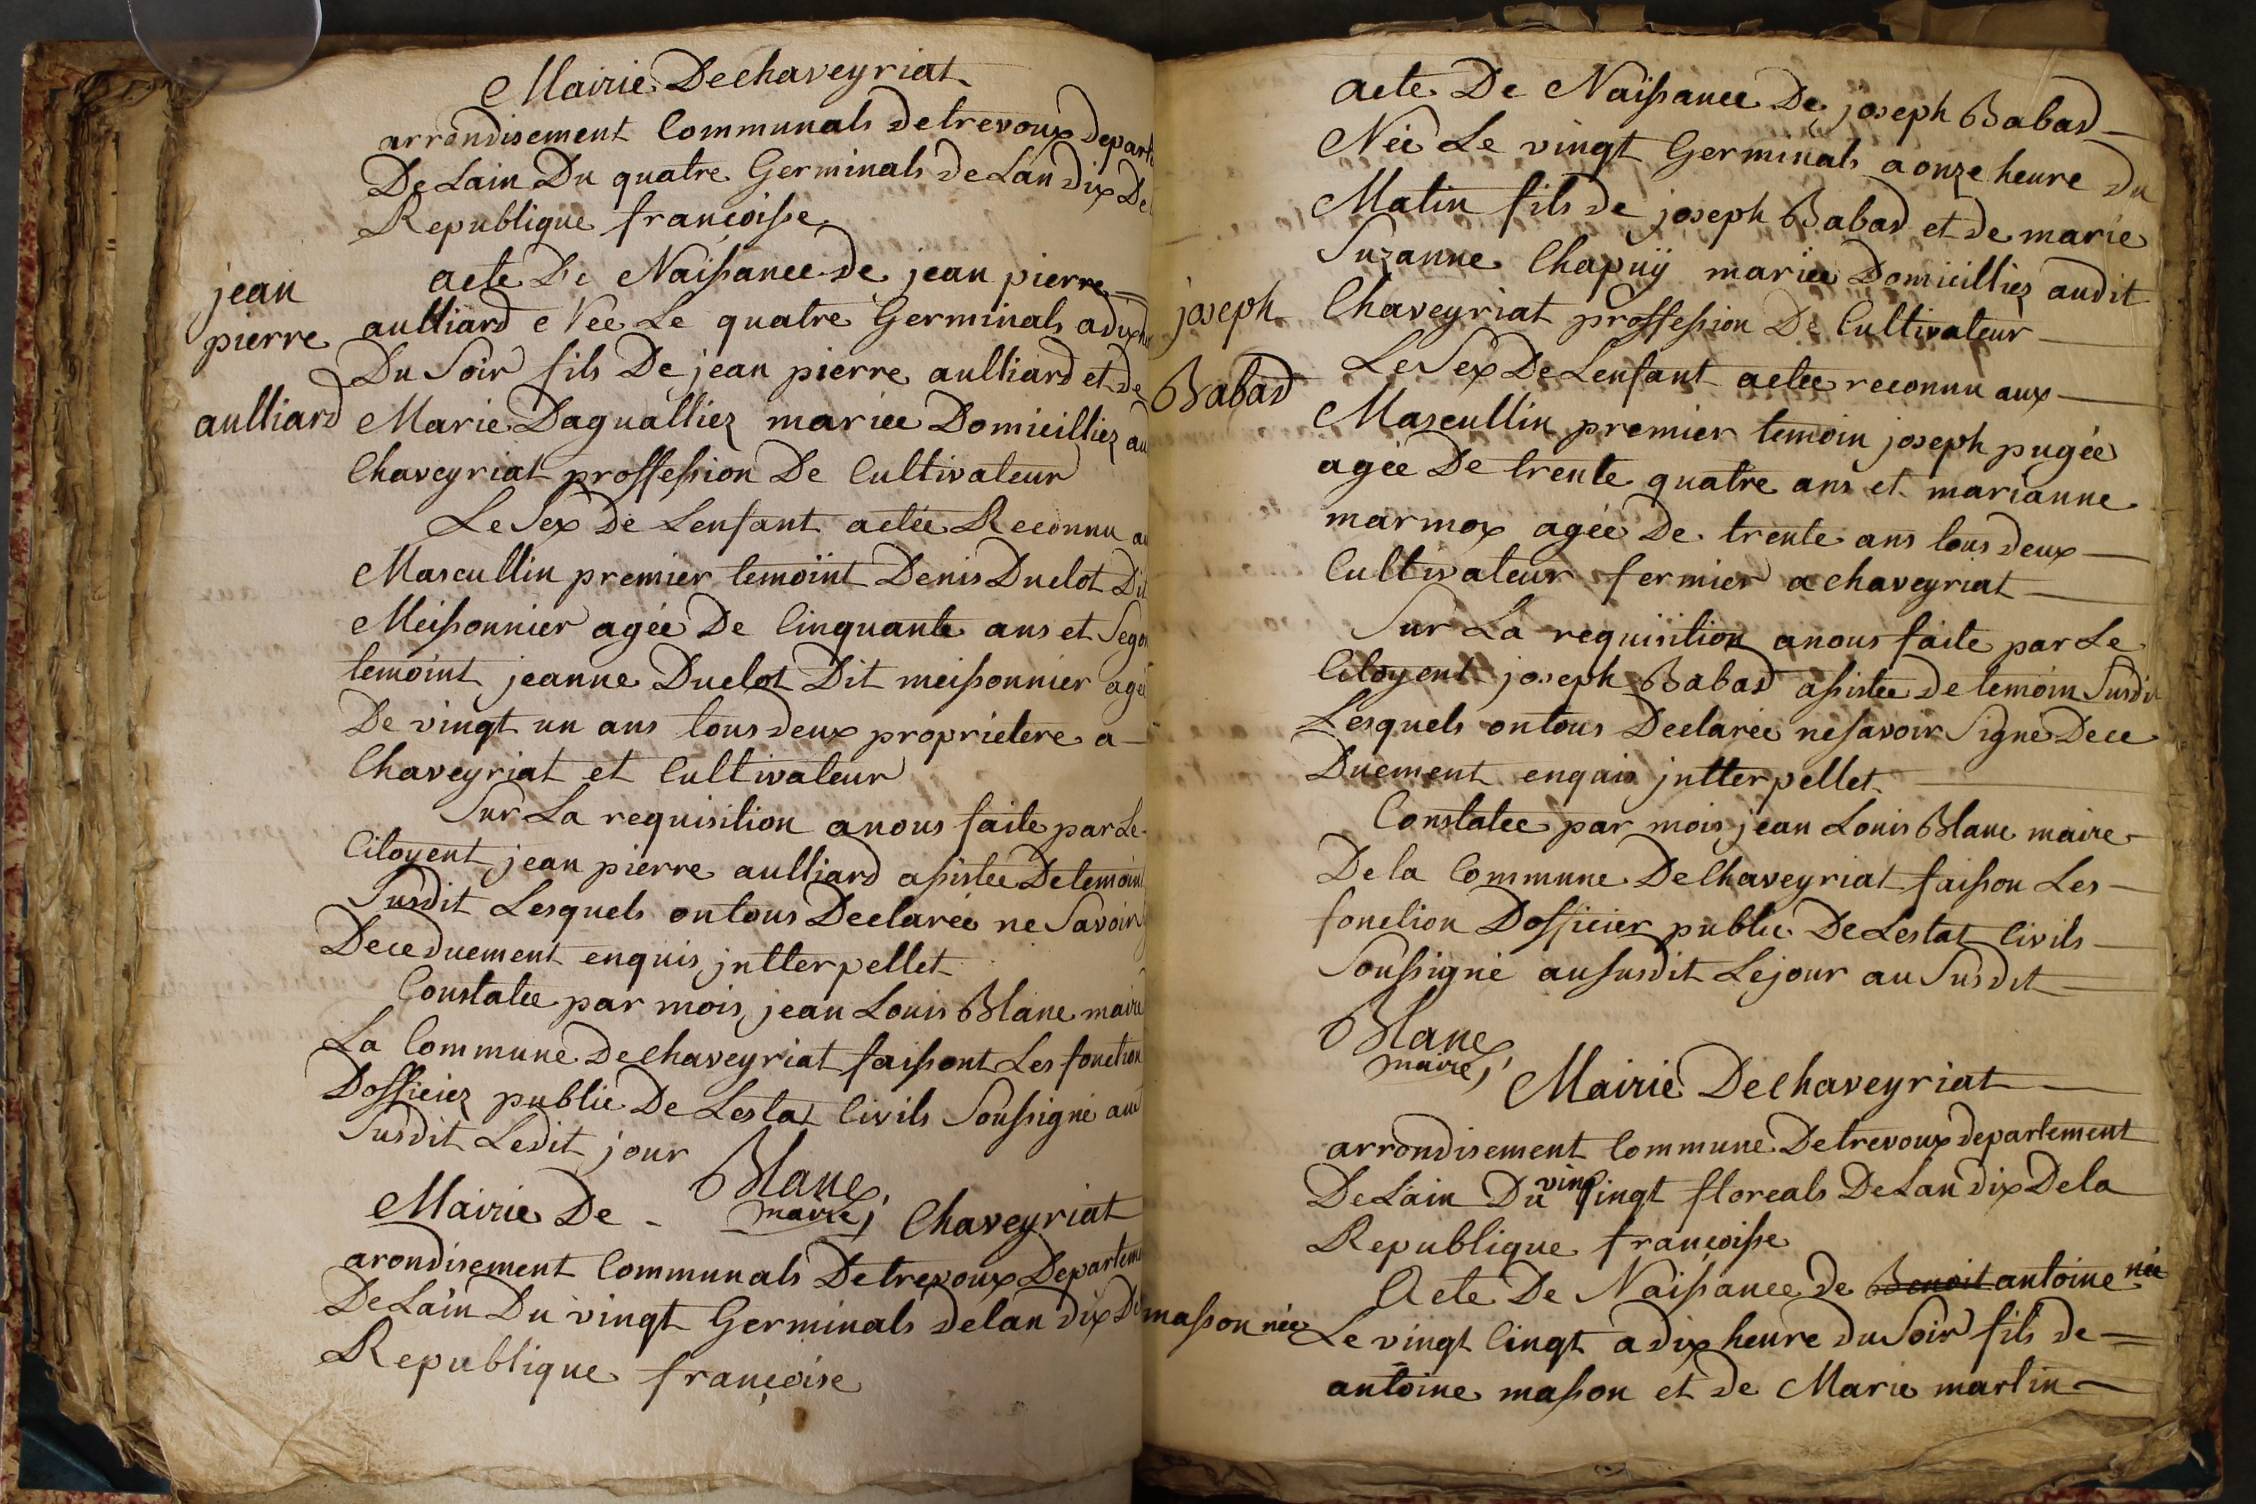 Mairie Dechaveyriat
arrondisement Communals Detrevoux Departe
De Lain Du quatre Germinals de Lan dix De
Republique françoisse
acte De Naissance de jean pierre
jean
pierre
aulliard
aulliard Née Le quatre Germinals a dix
Du Soir fils De jean pierre aulliard et de
Marie Dagualliez mariee Domicilliez au
Chaveyriat proffession De Cultivateur
Le Sex de Lenfant actée Reconnu au
Mascullin premier temoint Denis Duclot Dit
Meissonnier agée De Cinquante ans et Segon
temoint jeanne Duclot Dit meissonnier agée
De vingt un ans tous deux proprietere a
Chaveyriat et Cultivateur
Sur La requisition a nous faite par Le
Citoyent jean pierre aulliard assistee De temoint
Susdit Lesquels ontous Declarée ne Savoir
Dece duement enquis jntterpellet
Constatee par mois jean Louis Blanc maire
La Commune Dechaveyriat faissont Les fonction
Dofficiez public De Lestat Civils Soussigné au
Susdit Ledit jour
Blanc
maire
Mairie De - Chaveyriat
arondisement Communals Detrevoux Departeme
De Lain Du vingt Germinals delan dix De
Republique françoise
acte De Naissance De joseph Babad
Née Le vingt Germinals a onze heure du
Matin fils de joseph Babad et de marie
Suzanne Chapuÿ mariee Domicilliez audit
joseph
Babad
Chaveyriat proffession De Cultivateur
Le Sex De Lenfant actee reconnu aux
Mascullin premier temoin joseph pugée
agée De trente quatre ans et marianne
marmox agée De trente ans tous deux
Cultivateur fermier a chaveyriat
Sur La requisition a nous faite par Le
Citoyent joseph Babad assistee de temoin Susdit
Lesquels ontous Declarée ne savoir Signé Dece
Duement enquis jntterpellet
Constatee par mois jean Louis Blanc maire
De la Commune De Chaveyriat faisson Les
fonction Dofficier public De Lestat Civils
Soussigné au susdit Le jour au Susdit
Blanc
maire
Mairie Dechaveyriat
arrondisement Commune Detrevoux departement
De Lain Du vingt Cingt floreals De Lan dix De la
Republique françoisse
Acte De Naissance de Benoit antoine née
masson née
Le vingt Cingt a dix heure du Soir fils de
antoine masson et de Marie martin